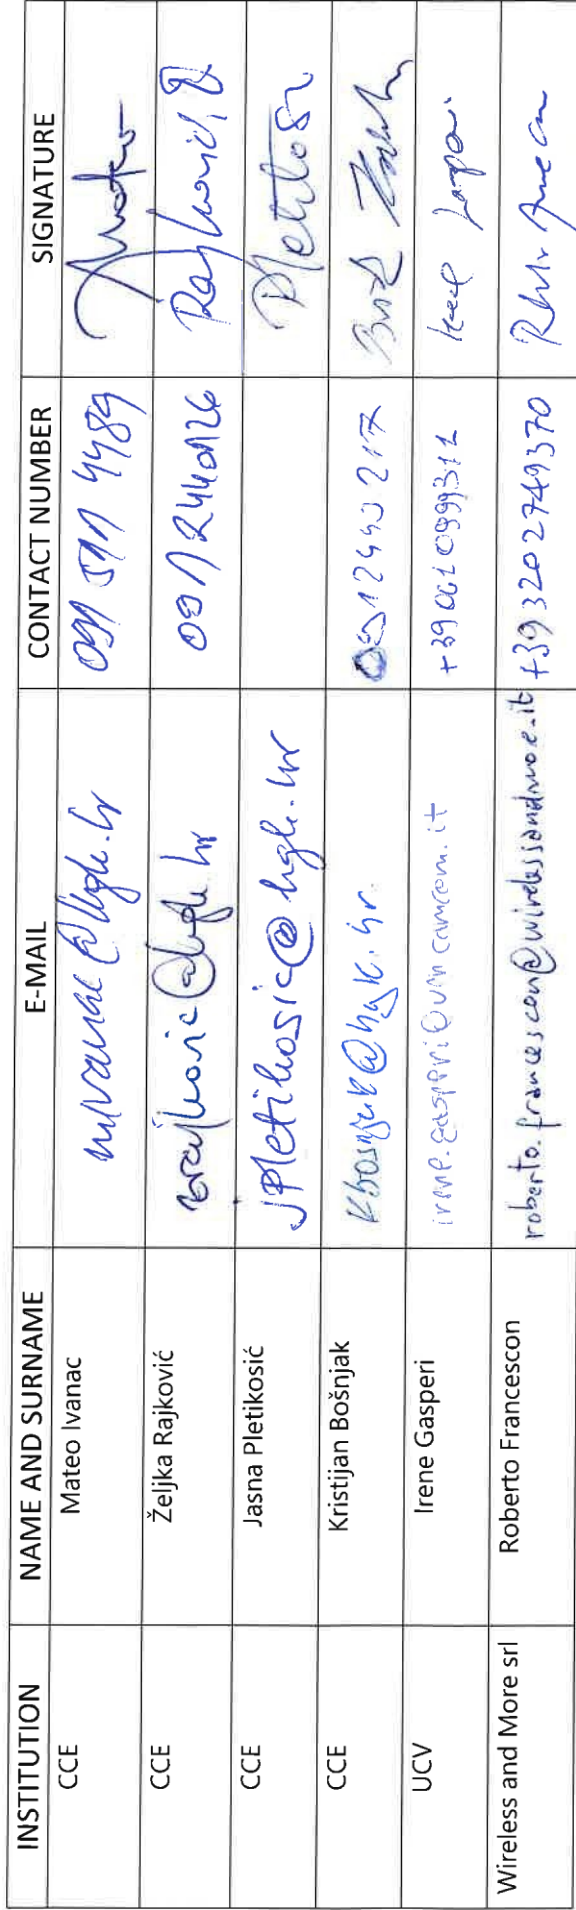 INSTITUTION NAME AND SURNAME E-MAIL CONTACT NUMBER SIGNATURE
CCE Mateo Ivanac mivanac@hgk.hr 091 511 4489
CCE Željka Rajković zrajkovic@hgk.hr Rajković
CCE Jasna Pletikosić jpletikosic@hgk.hr
CCE Kristijan Bošnjak kbosnjak@hgk.hr.
UCV Irene Gasperi irene.gasperi@ven.camcom.it
Wireless and More srl Roberto Francescon roberto.francescon@wirelessandmore.it +393202749370